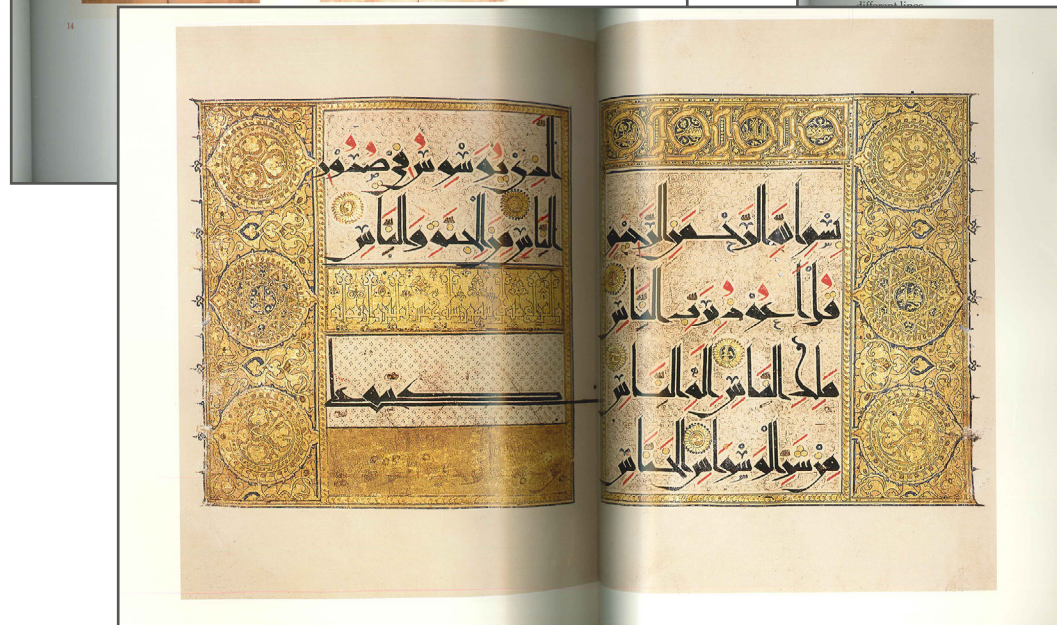 14
different lines
بسم الله الرحمن الرحيم
قل اعوذ برب الناس
ملك الناس اله الناس
من شر الوسواس الخناس
الذي يوسوس في صدور
الناس من الجنة والناس
كتبه علي